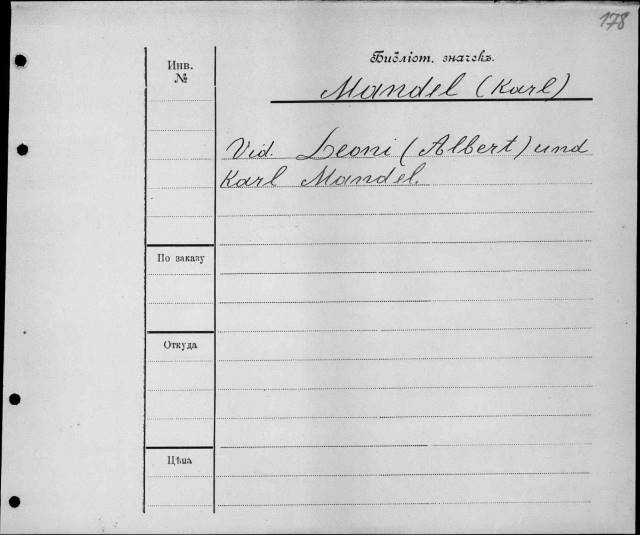 178
Инв.
№
Библіот. значекъ.
Mandel (Karl)
Vid. Leoni (Albert) und
Karl Mandel.
По заказу
Откуда
Цѣна